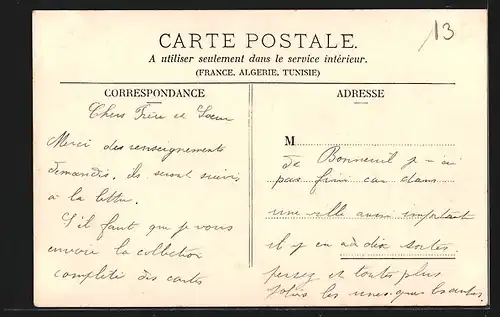 CARTE POSTALE.
A utiliser seulement dans le service intérieur.
(FRANCE, ALGERIE, TUNISIE)
13
CORRESPONDANCE
Chers Frère et Sœur
Merci des renseignements
demandés, ils seront suivis
à la lettre.
S'il faut que je vous
envoie la collection
complète des cartes
ADRESSE
M
de Bonneuil j-ai
pas fini car dans
une ville aussi important
il y en a dix sortes
et toutes plus
jolies les unes que les autres